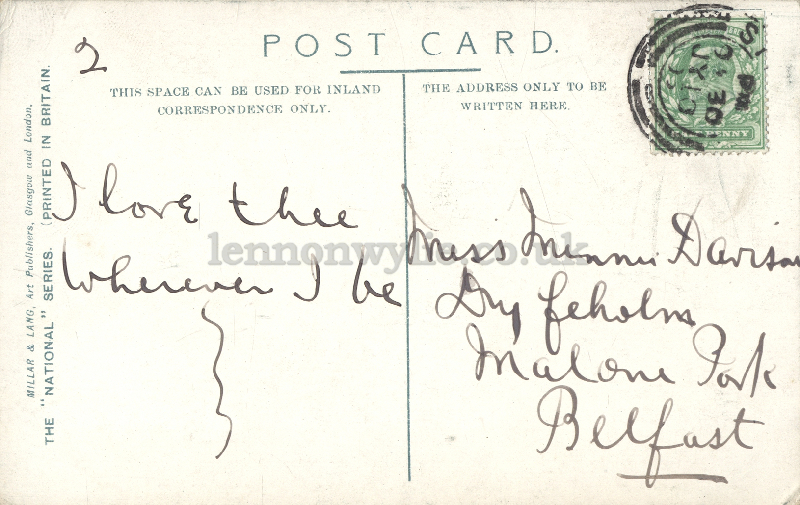 2
POST CARD.
THIS SPACE CAN BE USED FOR INLAND
CORRESPONDENCE ONLY.
THE ADDRESS ONLY TO BE
WRITTEN HERE.
MILLAR & LANG, Art Publishers, Glasgow and London.
THE "NATIONAL" SERIES. (PRINTED IN BRITAIN.
I love thee
Wherever I be
Miss Minnie Davison
Malone Park
Belfast
PENNY
lennonwylie.co.uk